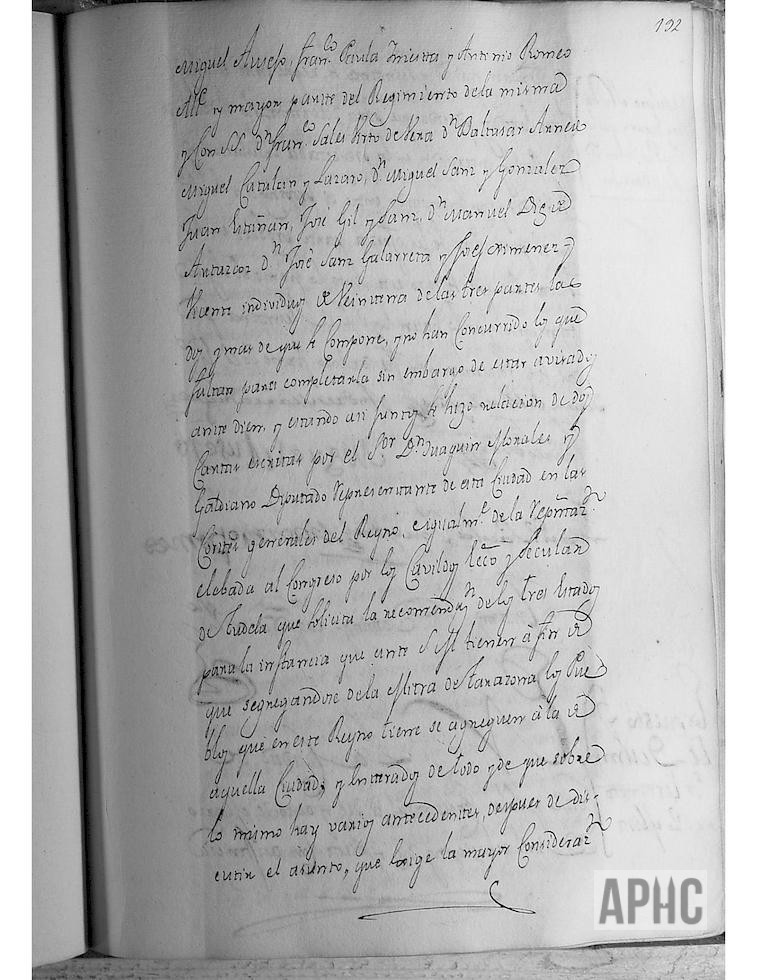 192
Miguel Anseso, fran.co Paula Iniesta y Antonio Romeo
All.e y mayor parte del Regimiento dela misma
y Con SS. Dn fran.co Sales Virto de Vera Dn Baltasar Annese
Miguel Catalan y Lazaro, Dn Miguel Sanz y Gonzalez
Juan Estañan, José Gil y Sanz, Dn Manuel Dig.o de
Dn José Sanz Galarreta y Josef Ximenez y
Vicente individuos de Veintena de las tres partes las
dos y mas de que se Compone, y no han Concurrido los que
faltan para completarla sin embargo de estar avisados
ante diem, y estando asi juntos se hizo relacion de dos
Cartas escritas por el Sor Dn Juaquin Morales y
Galdiano Diputado representante de esta Ciudad en las
Cortes generales del Reyno, e igualm.e de la Repñtaz.n
elebada al Congreso por los Cavildos Ecco y Secular
de Tudela que solicita la recomendaz.n de los tres Estados
para la instancia que ante S. M tienen à fin de
que segregandose de la Mitra de tarazona los Pue
blos que en este Reyno tiene se agreguen à la de
aquella Ciudad, y Enterados de todo y de que sobre
lo mismo hay varios antecedentes, despues de dis-
cutir el asunto, que Exige la mayor Consideraz.n
APHC